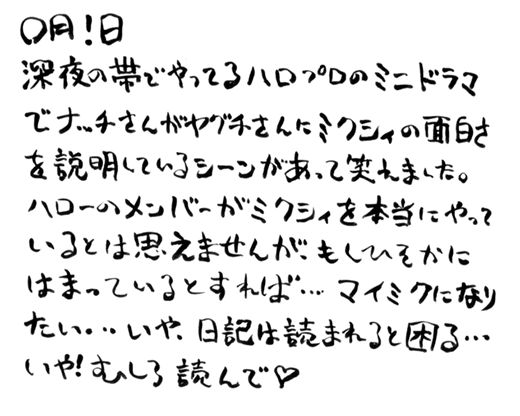 〇月!日
深夜の帯でやってるハロプロのミニドラマ
でナッチさんがヤグチさんにミクシィの面白さ
を説明しているシーンがあって笑えました。
ハローのメンバーがミクシィを本当にやって
いるとは思えませんが、もしひそかに
はまっているとすれば…マイミクになり
たい。・・いや、日記は読まれると困る…
いや!むしろ読んで♡